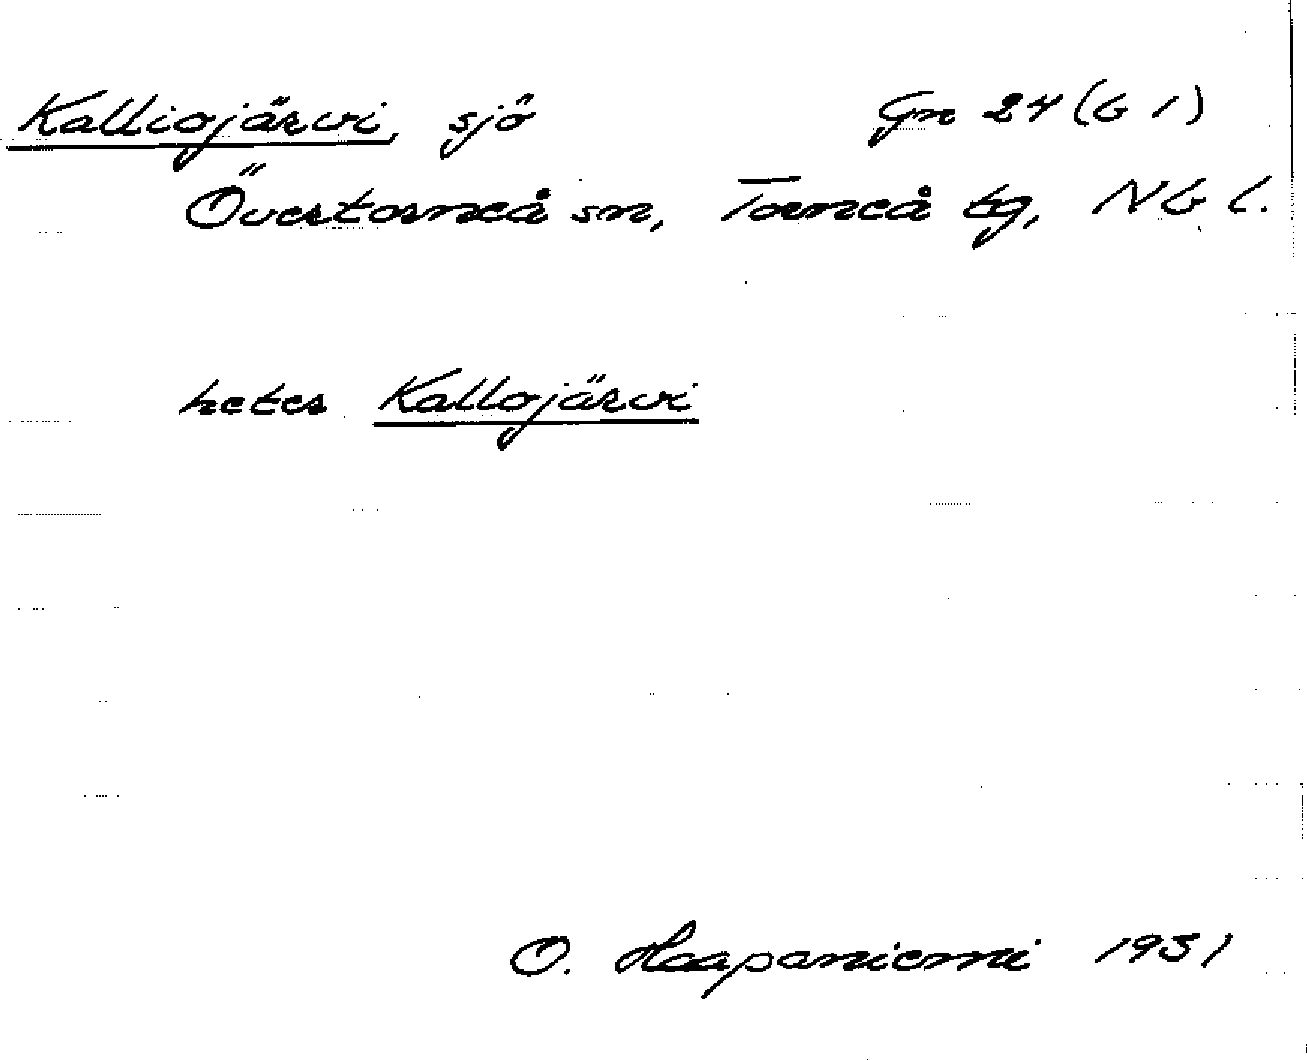 Kalliojärvi, sjö Gn 24 (b 1)
Övertorneå sn, Torneå tg, Nb l.
heter Kallojärvi
O. Haapaniemi 1931